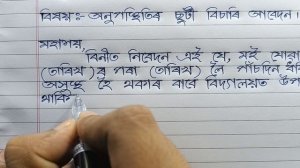 বিষয়:- অনুপস্থিতিৰ ছুটী বিচাৰি আবেদন।
মহাশয়,
বিনীত নিবেদন এই যে, মই যোৱা
(তাৰিখ)ৰ পৰা (তাৰিখ) লৈ পাঁচদিন
অসুস্থ হৈ থকাৰ বাবে বিদ্যালয়ত
থাকি